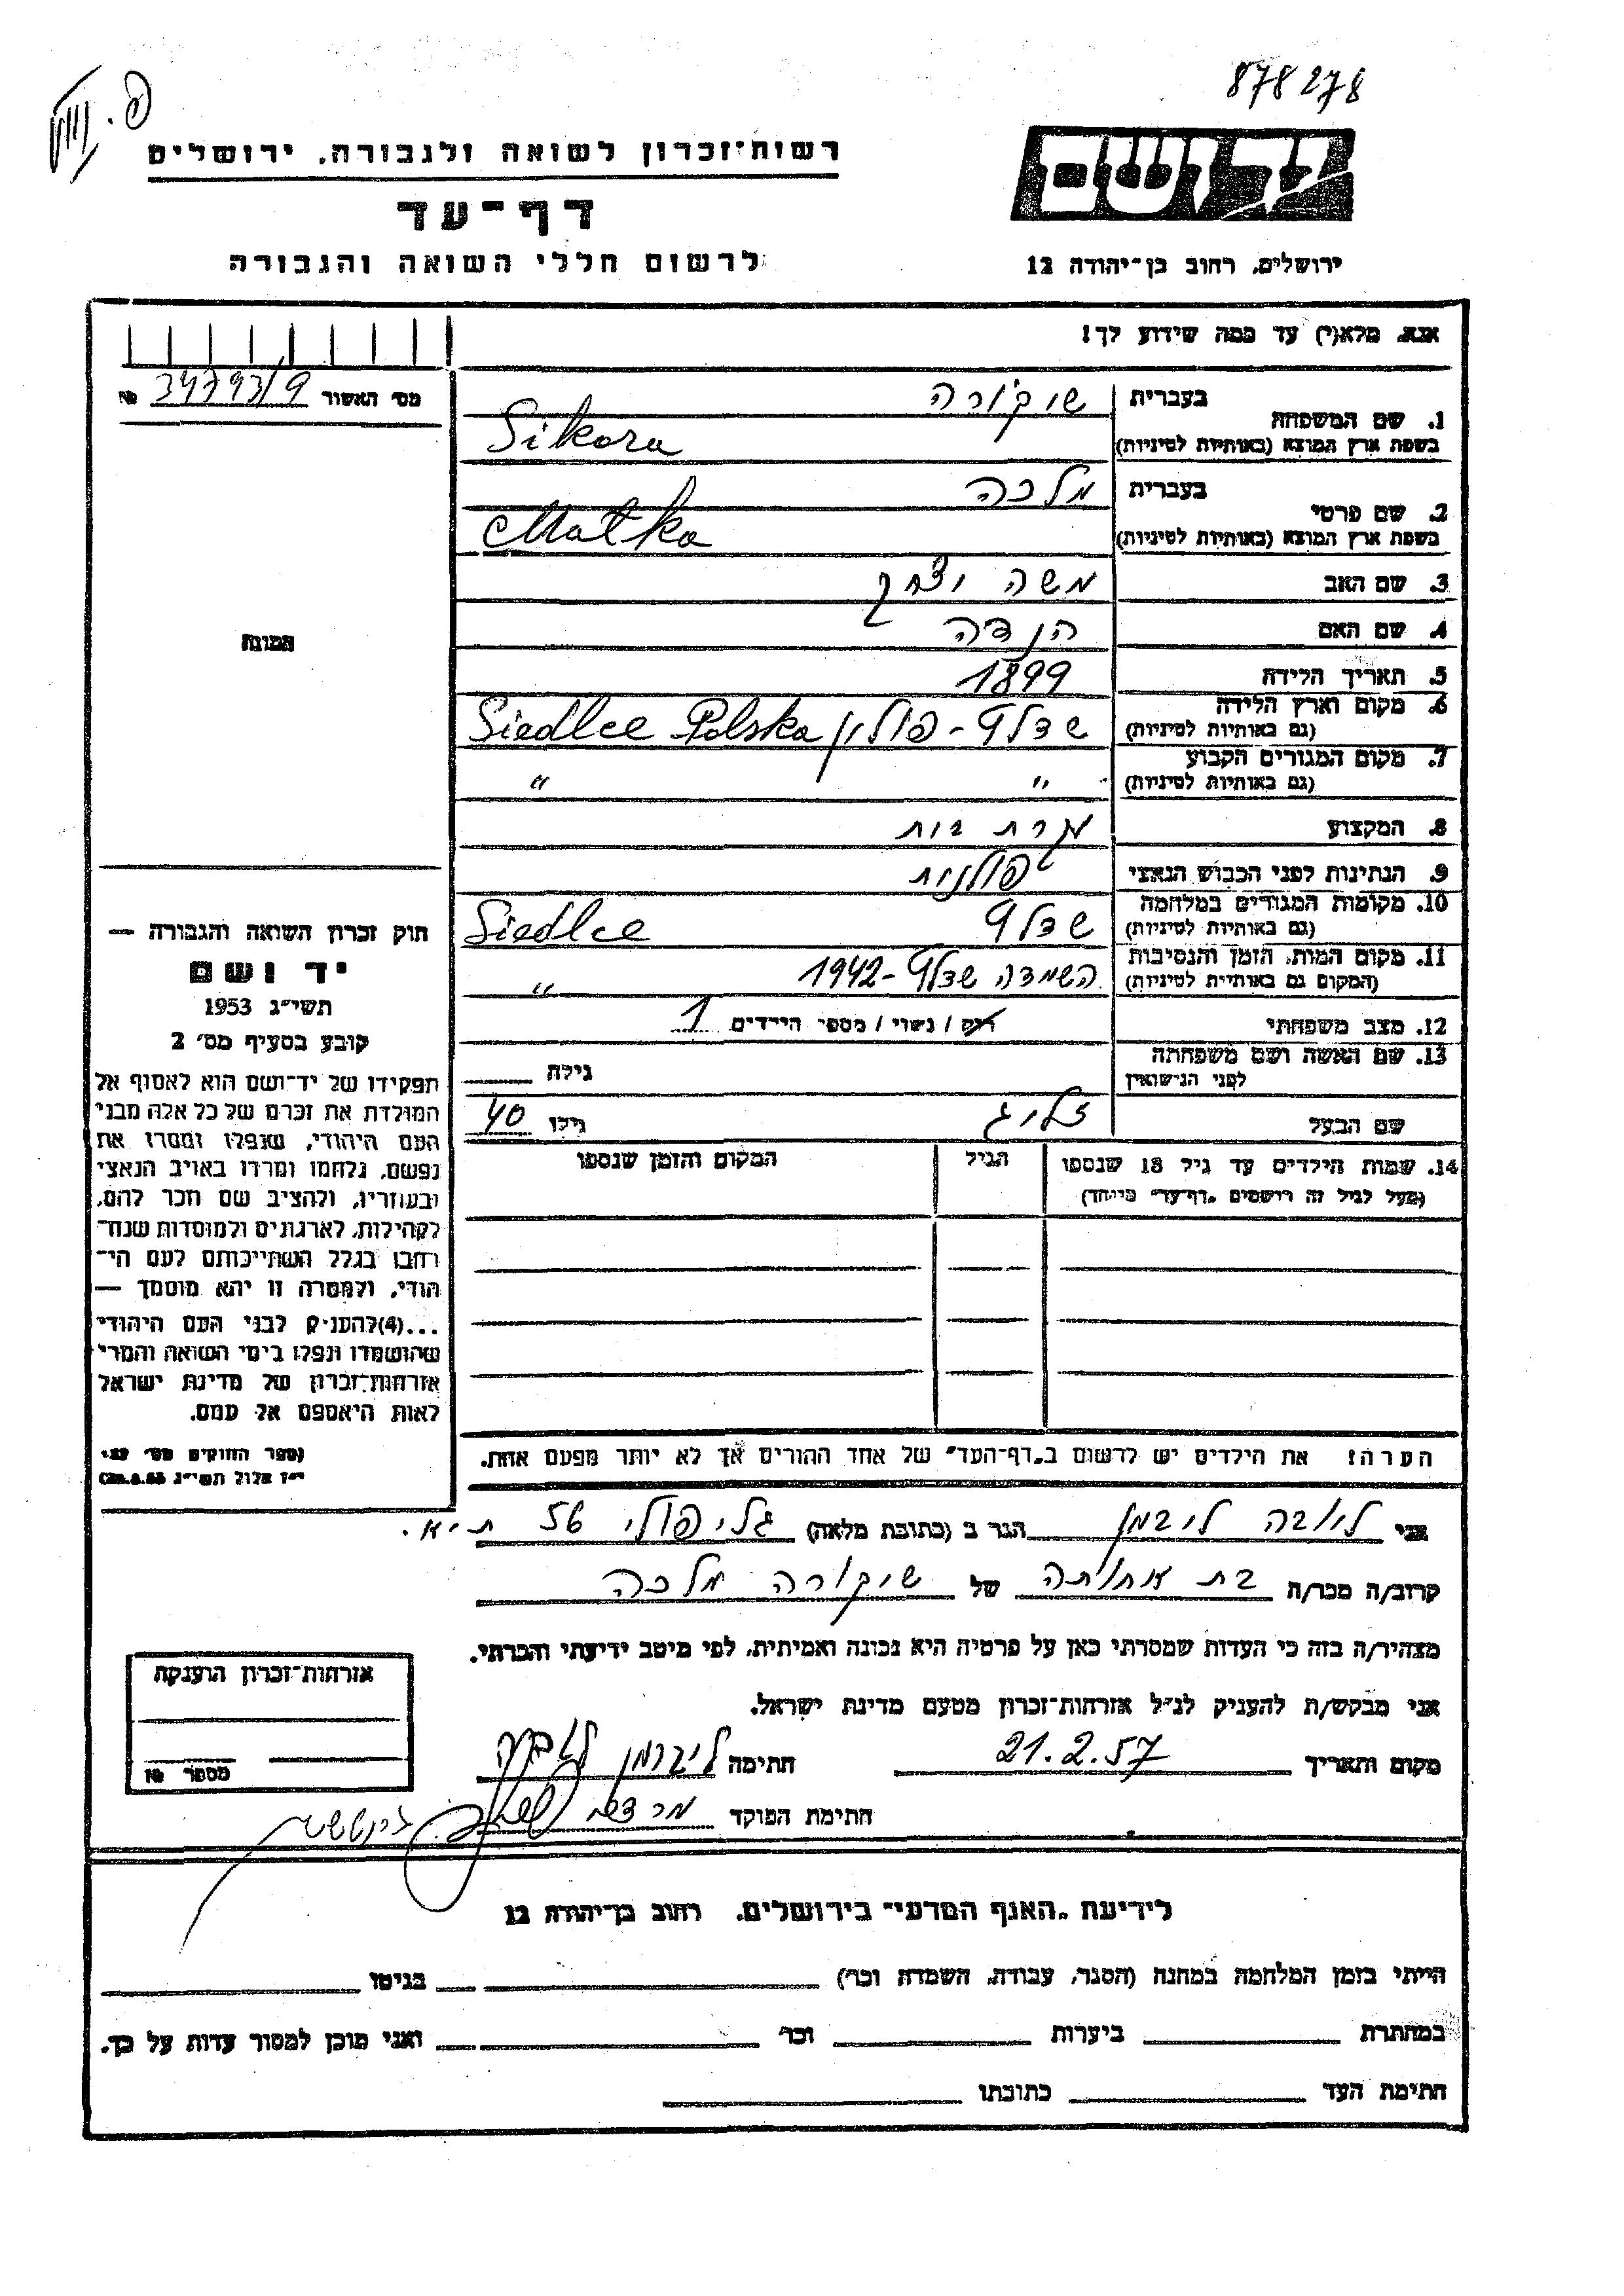 878278
רשות־זכרון לשואה ולגבורה, ירושלים
דף־עד
לרשום חללי השואה והגבורה
יד ושם
ירושלים, רחוב בן־יהודה 12
אנא, מלא(י) עד כמה שידוע לך!
מס' האשור 34793/9 №
1. שם המשפחה בעברית שיקורה
בשפת ארץ המוצא (באותיות לטיניות) Sikora
2. שם פרטי בעברית מלכה
בשפת ארץ המוצא (באותיות לטיניות) Malka
3. שם האב משה יצחק
4. שם האם הנדה
5. תאריך הלידה 1899
6. מקום וארץ הלידה (גם באותיות לטיניות) שדלץ - פולין Siedlce Polska
7. מקום המגורים הקבוע (גם באותיות לטיניות) " "
8. המקצוע עקרת בית
9. הנתינות לפני הכבוש הנאצי פולנית
10. מקומות המגורים במלחמה (גם באותיות לטיניות) שדלץ Siedlce
11. מקום המות, הזמן והנסיבות (המקום גם באותיות לטיניות) השמדה שדלץ - 1942 "
12. מצב משפחתי רוק / נשוי / מספר הילדים 1
13. שם האשה ושם משפחתה לפני הנישואין גילה
שם הבעל זליג גילו 40
14. שמות הילדים עד גיל 18 שנספו הגיל המקום והזמן שנספו
(מעל לגיל זה רושמים "דף־עד" מיוחד)
התמונה
חוק זכרון השואה והגבורה —
יד ושם
תשי"ג 1953
קובע בסעיף מס' 2
תפקידו של יד־ושם הוא לאסוף אל
המולדת את זכרם של כל אלה מבני
העם היהודי, שנפלו ומסרו את
נפשם, נלחמו ומרדו באויב הנאצי
ובעוזריו, ולהציב שם וזכר להם,
לקהילות, לארגונים ולמוסדות שנח־
רבו בגלל השתייכותם לעם הי־
הודי, ולמטרה זו יהא מוסמך —
...(4)להעניק לבני העם היהודי
שהושמדו ונפלו בימי השואה והמרי
אזרחות־זכרון של מדינת ישראל
לאות היאספם אל עמם.
(ספר החוקים מס' 132,
י"ז אלול תשי"ג 28.8.53)
הערה: את הילדים יש לרשום ב"דף־העד" של אחד ההורים אך לא יותר מפעם אחת.
אני ליובה ליברמן הגר ב (כתובת מלאה) גליפולי 56 ת"א.
קרוב/ה מכר/ה בת אחותה של שיקורה מלכה
מצהיר/ה בזה כי העדות שמסרתי כאן על פרטיה היא נכונה ואמיתית, לפי מיטב ידיעתי והכרתי.
אני מבקש/ת להעניק לנ"ל אזרחות־זכרון מטעם מדינת ישראל.
מקום ותאריך 21.2.57 חתימה ליברמן ליובה
חתימת הפוקד מרדכי
אזרחות־זכרון הוענקה
מספר №
לידיעת "האגף המדעי" בירושלים, רחוב בן־יהודה 12
הייתי בזמן המלחמה במחנה (הסגר, עבודה, השמדה וכו') בגיטו
במחתרת ביערות וכו' ואני מוכן למסור עדות על כך.
חתימת העד כתובתו